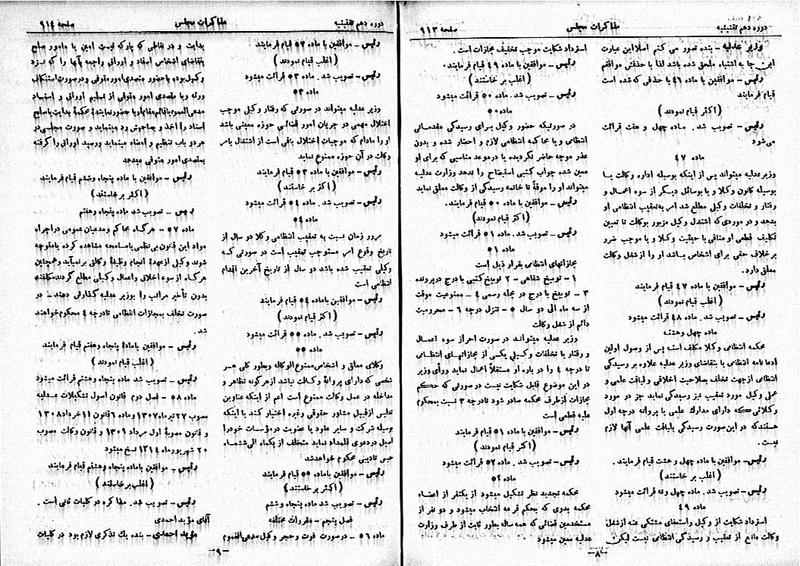 دوره دهم تقنینیه
مذاکرات مجلس
صفحه ۹۱۳
وزیر عدلیه - بنده تصور می کنم اصلا این عبارت
این جا به اشتباه ملحق شده باشد لذا با حذفش موافقم
رئیس - موافقین با ماده ۴۶ با حذفی که شده است
قیام فرمایند
(اکثر قیام نمودند)
رئیس - تصویب شد. ماده چهل و هفت قرائت
می شود
ماده ۴۷
وزیر عدلیه میتواند پس از اینکه بوسیله اداره وکالت یا
بوسیله کانون وکلا و یا بوسائل دیگر از سوء اعمال و
رفتار و تخلفات وکیل مطلع شد امر به تعقیب انتظامی او
بدهد و در موردی که اشتغال وکیل مزبور بوکالت تا تعیین
تکلیف قطعی او منافی با حیثیت وکلا و یا موجب ضرر
بر خلاف حقی برای اشخاص باشد او را از شغل وکالت
معلق دارد.
رئیس - موافقین با ماده ۴۷ قیام فرمایند
(اغلب قیام نمودند)
رئیس - تصویب شد. ماده ۴۸ قرائت میشود
ماده چهل و هشت
محکمه انتظامی وکلا مکلف است پس از وصول اولین
ادعا نامه انتظامی یا بتقاضای وزیر عدلیه علاوه بر رسیدگی
انتظامی از جهت تخلف بصلاحیت اخلاقی و لیاقت علمی و
عملی وکیل مورد تعقیب نیز رسیدگی نماید جز در مورد
وکلائی که دارای مدارک علمی یا پروانه درجه اول
هستند که در این صورت رسیدگی بلیاقت علمی آنها لازم
نیست.
رئیس - موافقین با ماده چهل و هشت قیام فرمایند.
(اغلب بر خاستند)
رئیس - تصویب شد. ماده چهل و نه قرائت میشود
ماده ۴۹
استرداد شکایت از وکیل و استعفای مشتکی عنه از شغل
وکالت مانع از تعقیب و رسیدگی انتظامی نیست لیکن
استرداد شکایت موجب تخفیف مجازات است.
رئیس - موافقین با ماده ۴۹ قیام فرمایند.
(اغلب بر خاستند)
رئیس - تصویب شد. ماده ۵۰ قرائت میشود
ماده ۵۰
در صورتیکه حضور وکیل برای رسیدگی مقدماتی
انتظامی و یا محاکمه انتظامی لازم و احضار شده و بدون
عذر موجه حاضر نگردیده یا در موعد مناسبی که برای او
معین شده جواب کتبی استیضاح را ندهد وزارت عدلیه
میتواند او را موقتا تا خاتمه رسیدگی از وکالت معلق نماید
رئیس - موافقین با ماده ۵۰ قیام فرمایند.
(اکثر قیام نمودند)
رئیس - تصویب شد. ماده ۵۱ قرائت میشود
ماده ۵۱
مجازاتهای انتظامی بقرار ذیل است
۱ - توبیخ شفاهی - ۲ توبیخ کتبی با درج در پرونده
۳ - توبیخ با درج در مجله رسمی ۴ - ممنوعیت موقت
از سه ماه الی دو سال ۵ - تنزل درجه ۶ - محرومیت
دائم از شغل وکالت
وزیر عدلیه میتواند در صورت احراز سوء اعمال
و رفتار یا تخلفات وکیل یکی از مجازاتهای انتظامی
تا درجه ۴ را در باره او مستقلا اعمال نماید و رأی وزیر
در این موضوع قابل شکایت نیست در صورتی که حکم
مجازات از طرف محکمه صادر شود تا درجه ۳ نسبت بمحکوم
علیه قطعی است
رئیس - موافقین با ماده ۵۱ قیام فرمایند
(اکثر قیام نمودند)
رئیس - تصویب شد. ماده ۵۲ قرائت میشود
ماده ۵۲
محکمه تجدید نظر تشکیل میشود از یکنفر از اعضاء
محکمه بدوی که بحکم قرعه انتخاب میشود و دو نفر از
مستخدمین قضائی که همه ساله بطور ثابت از طرف وزارت
عدلیه معین میشود
- ۸ -
دوره دهم تقنینیه
مذاکرات مجلس
صفحه ۹۱۴
رئیس - موافقین با ماده ۵۲ قیام فرمایند
(اغلب قیام نمودند)
رئیس - تصویب شد. ماده ۵۳ قرائت میشود
ماده ۵۳
وزیر عدلیه میتواند در صورتی که رفتار وکیل موجب
اختلال مهمی در جریان امور قضائی حوزه معینی باشد
او را مادام که موجبات اختلال باقی است از اشتغال بامر
وکالت در آن حوزه ممنوع نماید
رئیس - موافقین با ماده ۵۳ قیام فرمایند
(اکثر بر خاستند)
رئیس - تصویب شد. ماده ۵۴ قرائت میشود
ماده ۵۴
مرور زمان نسبت به تعقیب انتظامی وکلا دو سال از
تاریخ وقوع امر مستوجب تعقیب است در صورتی که
وکیلی تعقیب شده باشد دو سال از تاریخ آخرین اقدام
انتظامی است
رئیس - موافقین با ماده ۵۴ قیام فرمایند
(اکثر قیام نمودند)
رئیس - تصویب شد. ماده ۵۵ قرائت میشود
ماده ۵۵
وکلای معلق و اشخاص ممنوع الوکاله و بطور کلی هر
شخصی که دارای پروانه وکالت نباشد از هر گونه تظاهر و
مداخله در عمل وکالت ممنوع است اعم از اینکه عناوین
تدلیس از قبیل مشاور حقوقی و غیره اختیار کند یا اینکه
بوسیله شرکت و سایر عقود یا عضویت در مؤسسات خود را
اصیل در دعوی قلمداد نماید متخلف از یکماه الی شش ماه
حبس تادیبی محکوم خواهد شد
رئیس - موافقین با ماده ۵۵ قیام فرمایند
(اکثر بر خاستند)
رئیس - تصویب شد. ماده پنجاه و ششم
فصل پنجم - مقررات مختلفه
ماده ۵۶ - در صورت فوت و حجر وکیل مدعی العموم
بدایت و در نقاطی که پارکه نیست امین یا مامور صلح
بتقاضای اشخاص اسناد و اوراق راجعه آنها را که نزد
وکیل بوده با حضور متصدی امور متوفی و در صورت استنکاف
ورثه و یا متصدی امور متوفی از تسلیم اوراق و اسناد
اسناد را اخذ و بصاحبش رد مینماید و صورت مجلسی در
هر دو باب تنظیم و امضاء مینماید و رسید اوراق را گرفته
بمتصدی امور متوفی میدهد
رئیس - موافقین با ماده پنجاه و ششم قیام فرمایند
(اکثر بر خاستند)
رئیس - تصویب شد ماده پنجاه و هفتم
ماده ۵۷ - هر گاه محاکم و مدعیان عمومی در اجراء
مواد این قانون بی نظمی یا مسامحه مشاهده کرده یا متوجه
شوند وکیل از عهده انجام وظیفه وکالتی بر نمیاید و همچنین
هر گاه از سوء اخلاق و اعمال وکیلی مطلع گردند مکلفند
بدون تأخیر مراتب را بوزیر عدلیه گذارش دهند - در
صورت تخلف بمجازات انتظامی تا درجه ۴ محکوم خواهند
شد.
رئیس - موافقین با ماده پنجاه و هفتم قیام فرمایند
(اغلب قیام نمودند)
رئیس - تصویب شد ماده پنجاه و هشتم قرائت میشود
ماده ۵۸ - فصل دوم قانون اصول تشکیلات عدلیه
مصوب ۲۷ تیر ماه ۱۳۰۷ و ماده ۶ قانون ۱۱ خرداد ۱۳۰۸
و قانون مصوبه اول مرداد ۱۳۰۹ و قانون وکالت مصوب
۲۰ شهریور ماه ۱۳۱۴ نسخ میشود
رئیس - موافقین با ماده پنجاه و هشتم قیام فرمایند
(اغلب بر خاستند)
رئیس - تصویب شد. مذاکره در کلیات ثانی است.
آقای مؤید احمدی
مؤید احمدی - بنده یک تذکری لازم بود در کلیات
- ۹ -